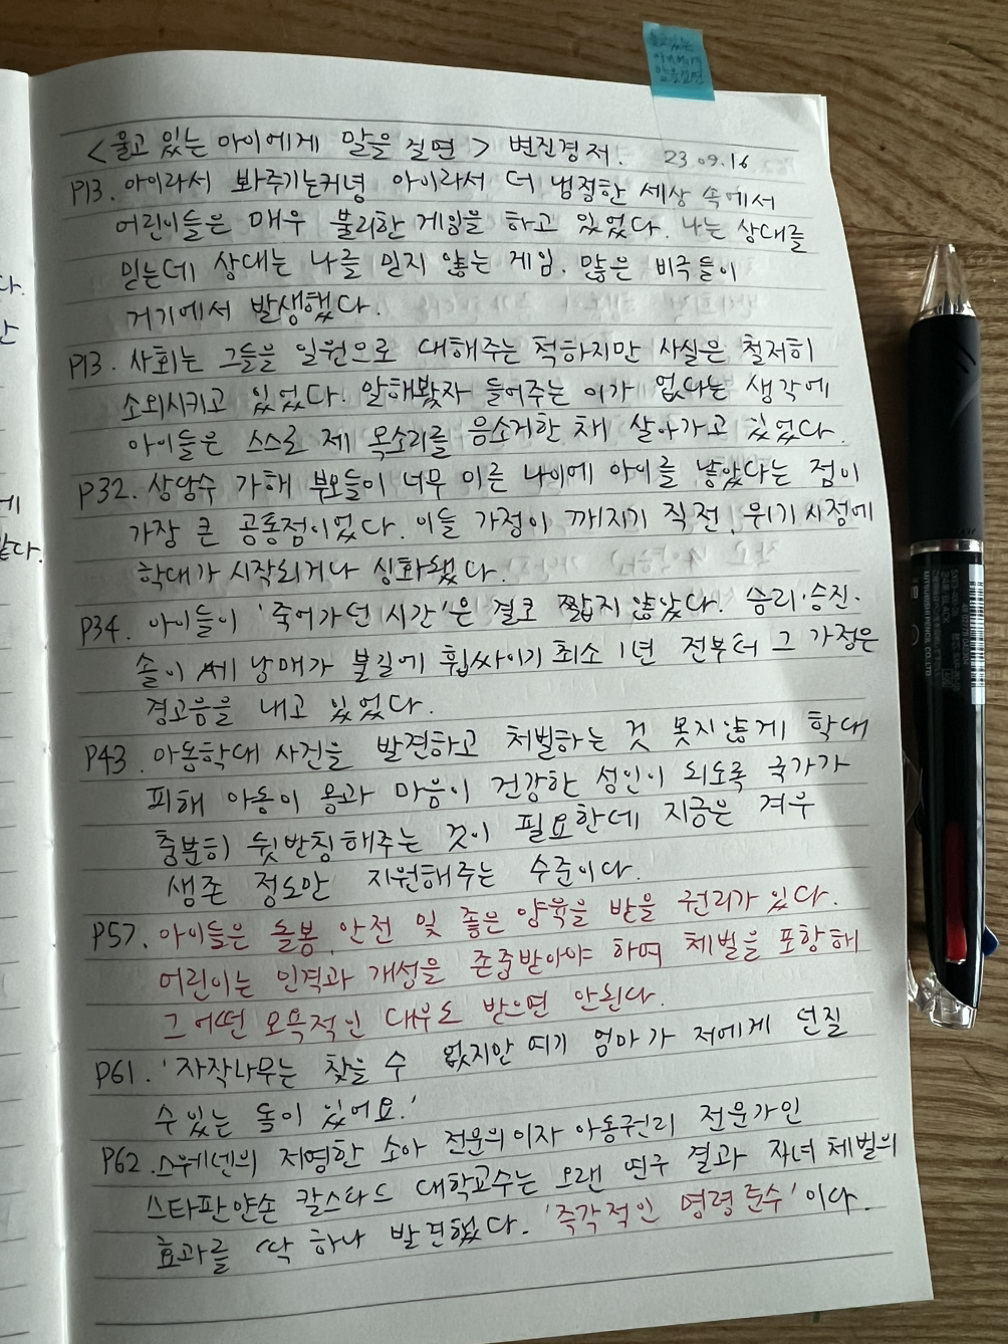 <울고 있는 아이에게 말을 걸면> 변진경 저. 23.09.16
P13. 아이라서 봐주기는커녕 아이라서 더 냉정한 세상 속에서
어린이들은 매우 불리한 게임을 하고 있었다. 나는 상대를
믿는데 상대는 나를 믿지 않는 게임. 많은 비극들이
거기에서 발생했다.
P13. 사회는 그들을 일원으로 대해주는 척하지만 사실은 철저히
소외시키고 있었다. 말해봤자 들어주는 이가 없다는 생각에
아이들은 스스로 제 목소리를 음소거한 채 살아가고 있었다.
P32. 상당수 가해 부모들이 너무 이른 나이에 아이를 낳았다는 점이
가장 큰 공통점이었다. 이들 가정이 깨지기 직전, 위기 시점에
학대가 시작되거나 심화됐다.
P34. 아이들이 '죽어가던 시간'은 결코 짧지 않았다. 승리·승진·
솔이 세 남매가 불길에 휩싸이기 최소 1년 전부터 그 가정은
경고음을 내고 있었다.
P43. 아동학대 사건을 발견하고 처벌하는 것 못지않게 학대
피해 아동이 몸과 마음이 건강한 성인이 되도록 국가가
충분히 뒷받침해주는 것이 필요한데 지금은 겨우
생존 정도만 지원해주는 수준이다.
P57. 아이들은 돌봄, 안전 및 좋은 양육을 받을 권리가 있다.
어린이는 인격과 개성을 존중받아야 하며 체벌을 포함해
그 어떤 모욕적인 대우도 받으면 안된다.
P61. '자작나무는 찾을 수 없지만 여기 엄마가 저에게 던질
수 있는 돌이 있어요.'
P62. 스웨덴의 저명한 소아 전문의이자 아동권리 전문가인
스타판얀손 칼스타드 대학교수는 오랜 연구 결과 자녀 체벌의
효과를 딱 하나 발견했다. '즉각적인 명령 준수'이다.
MITSUBISHI PENCIL CO., LTD.